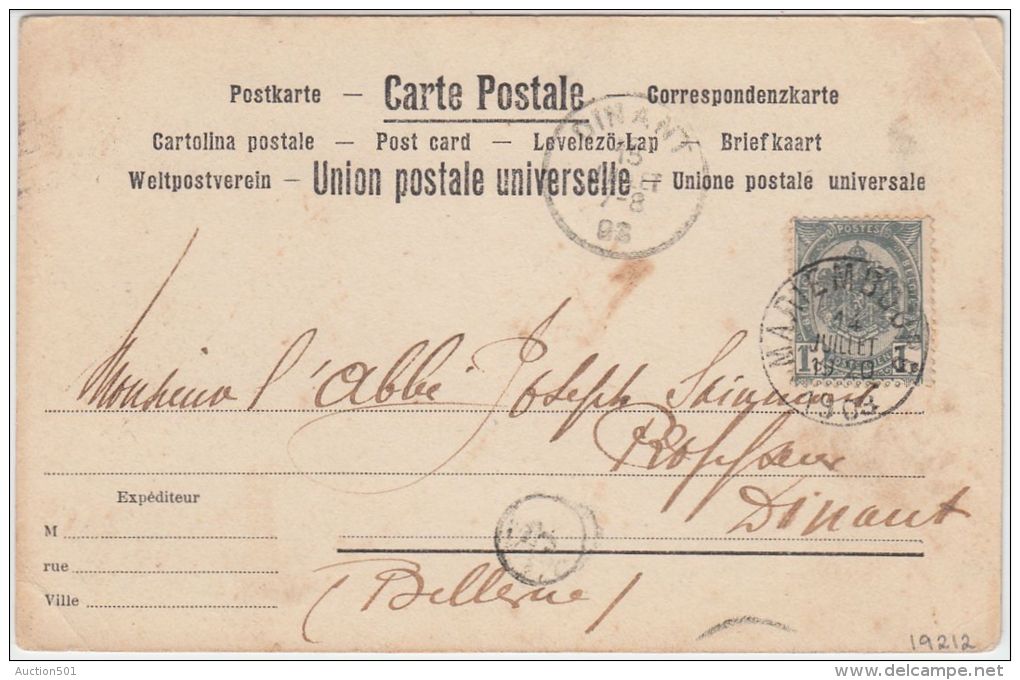 Postkarte — Carte Postale — Correspondenzkarte
Cartolina postale — Post card — Levelező-Lap — Briefkaart
Weltpostverein — Union postale universelle — Unione postale universale
DINANT
15
7-8
POSTES
MARIEMBOU
14
JUILLET
19-20
1903
1
1
Monsieur l'Abbé Joseph
Professeur
Dinant
(Bellevue)
Expéditeur
M
rue
Ville
19212
Auction501
delcampe.net